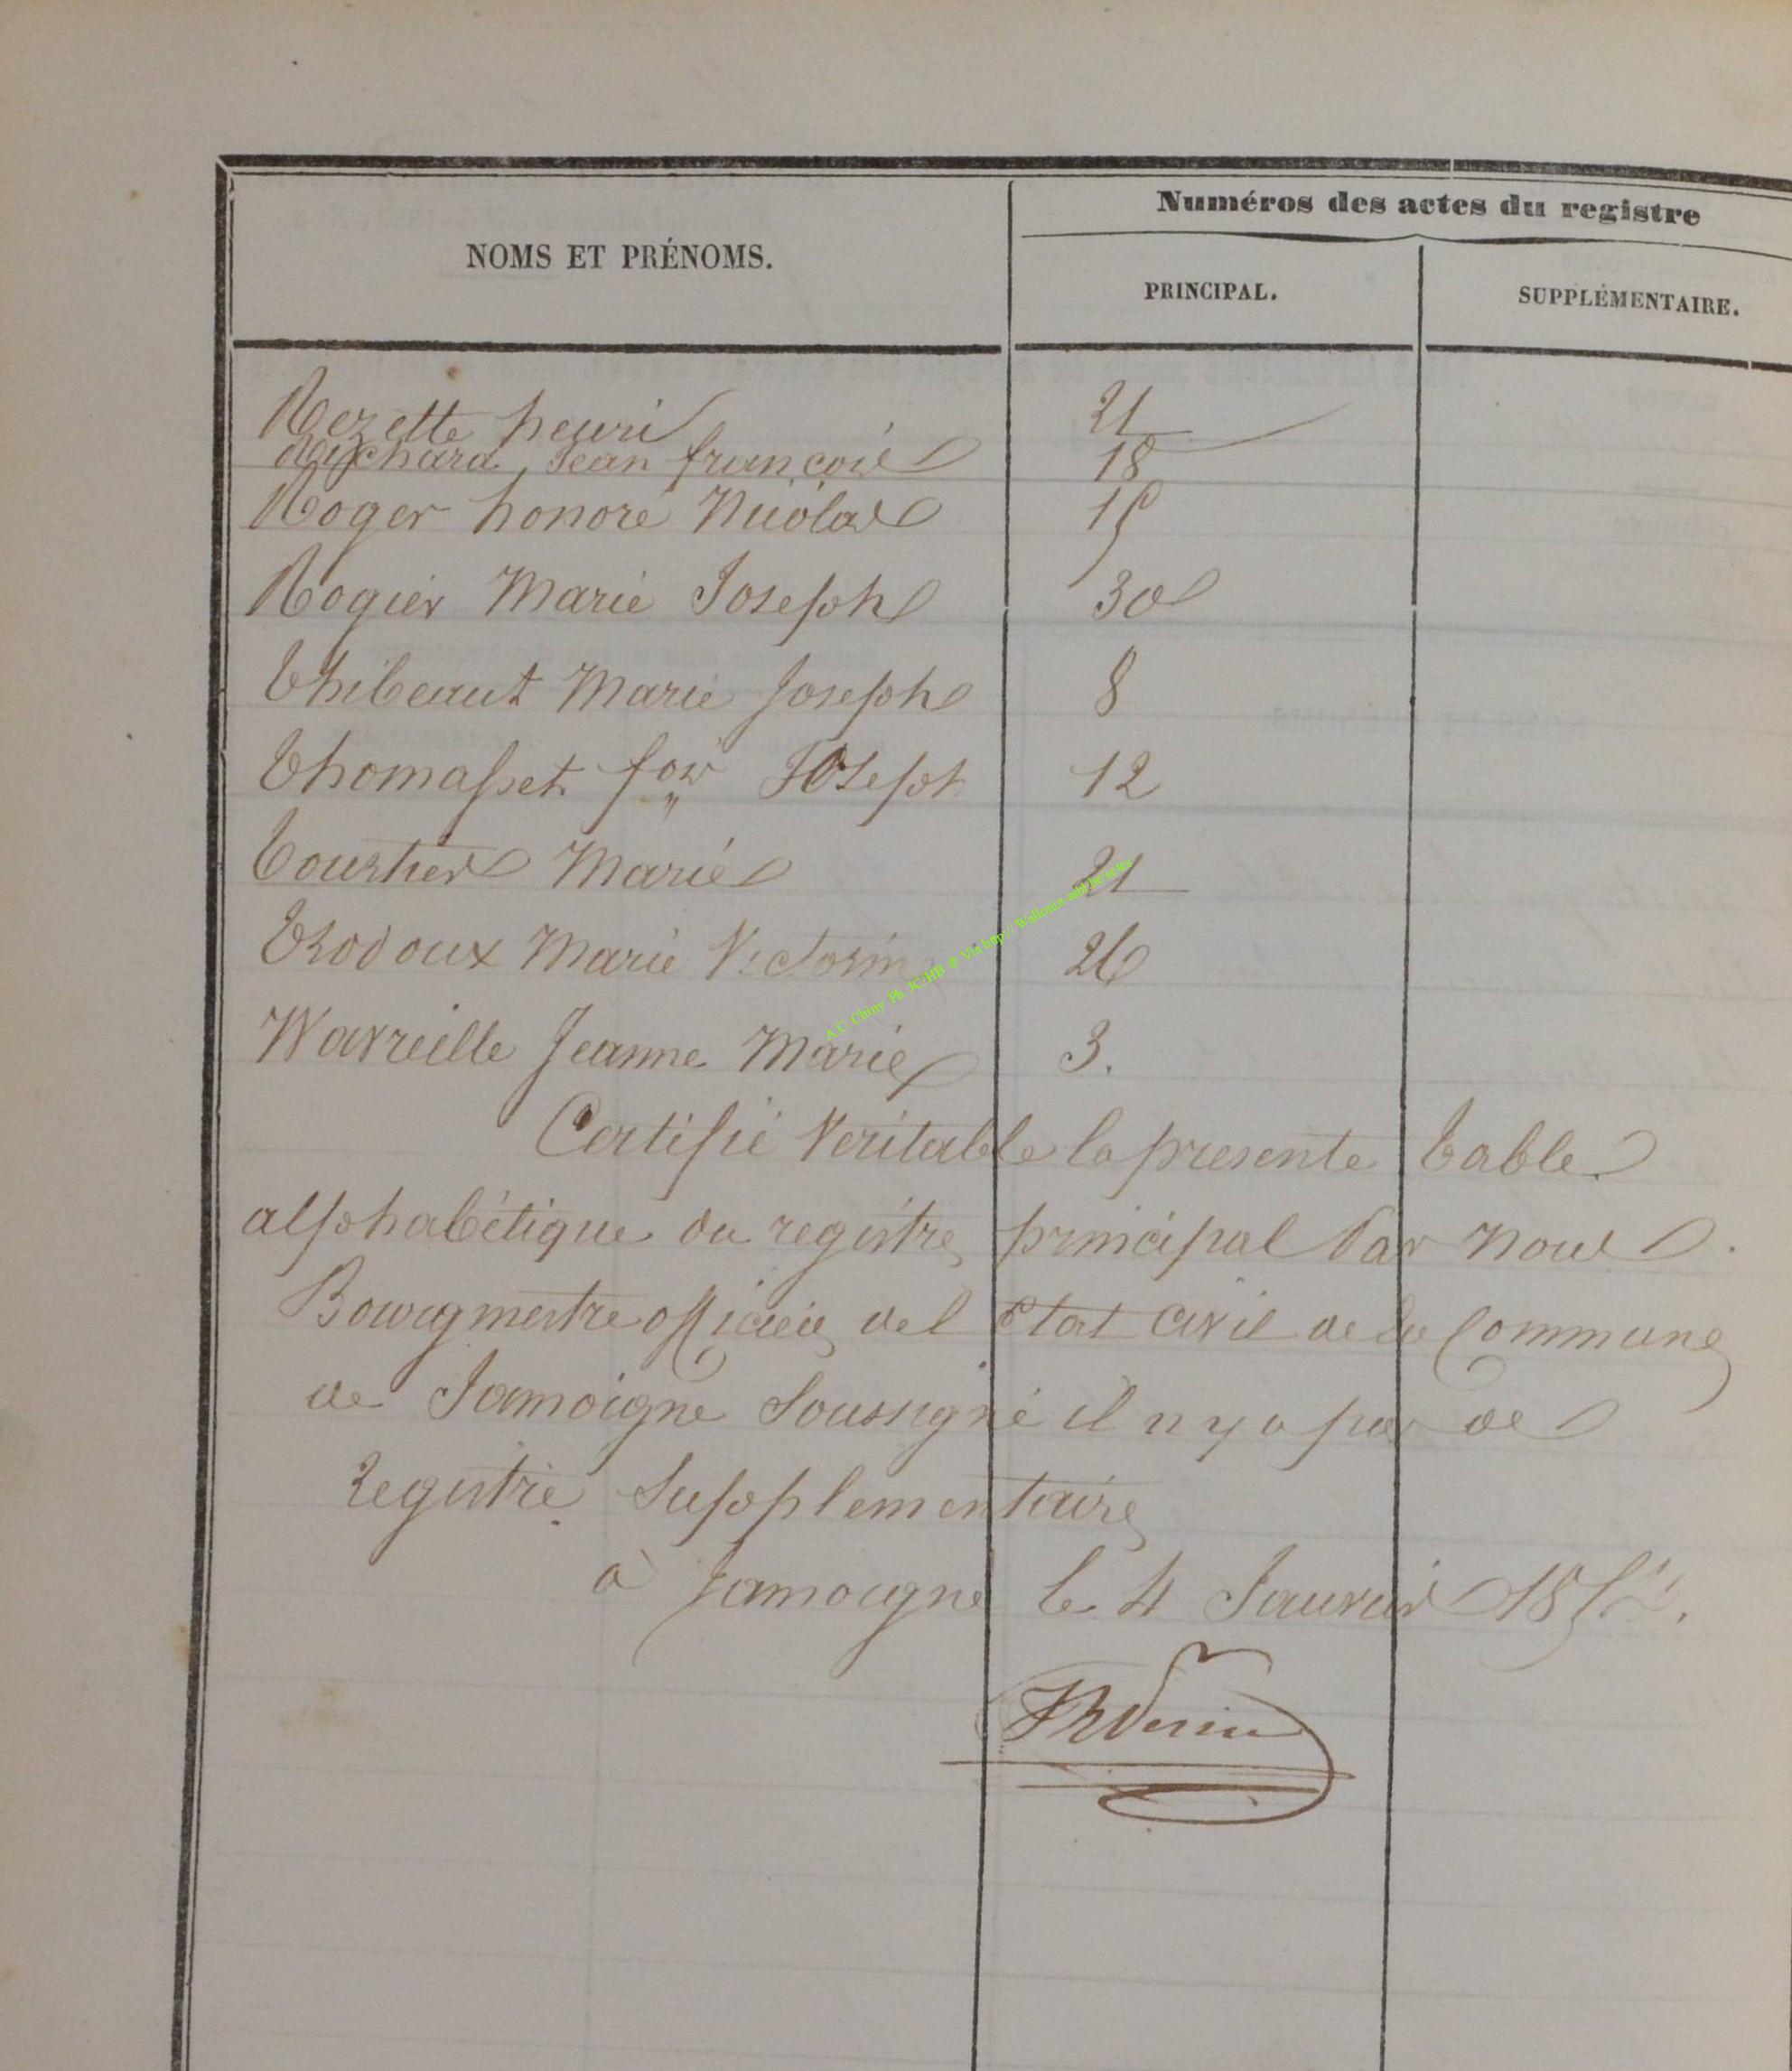 Numéros des actes du registre
NOMS ET PRÉNOMS.
PRINCIPAL. SUPPLÉMENTAIRE.
Rezette henri 21
Richard Jean françois 18
Roger honoré Nicolas 15
Rogier Marie Joseph 30
Thibeaut Marie Joseph 8
Thomasset fois Joseph 12
Tourtier Marie 21
Trodoux Marie Victorine 26
Wavreille Jeanne Marie 3.
Certifié Veritable la presente table
alphabétique du registre principal Par nous
Bourgmestre officier de l Etat civil de la Commune
de Jamoigne Soussigné il n y a pas de
registre Supplementaire
à Jamoigne le 4 Janvier
A.C Chiny Ph JC/HB © Via http//Wallonie-